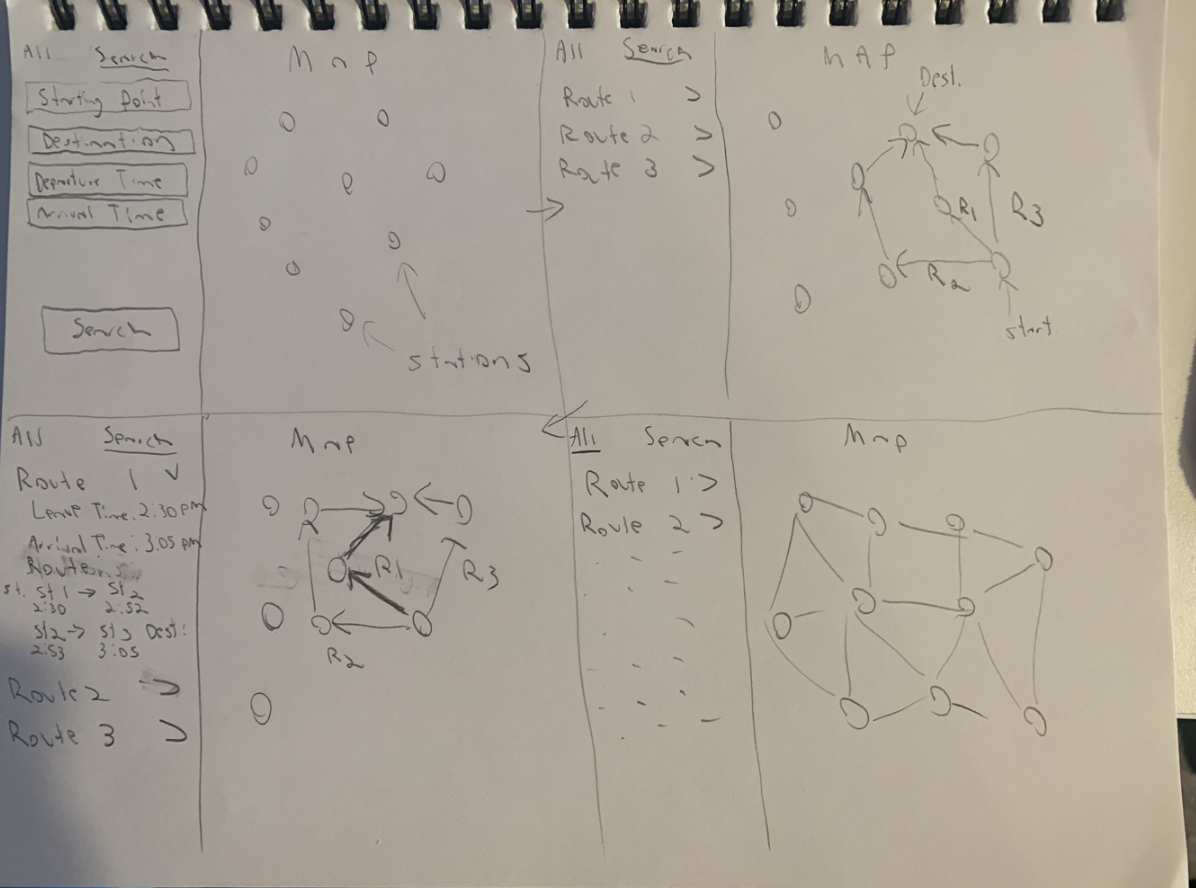 All Search
Starting Point
Destination
Departure Time
Arrival Time
Search
Map
stations
All Search
Route 1 >
Route 2 >
Route 3 >
MAP
Dest.
R1
R3
R2
start
All Search
Route 1
Leave Time: 2:30 pm
Arrival Time: 3:05 pm
Route:
st. St 1 → St 2
2:30 2:52
St2 -> St 3 Dest:
2:53 3:05
Route 2 >
Route 3 >
Map
R1
R3
R2
All Search
Route 1 >
Route 2 >
Map